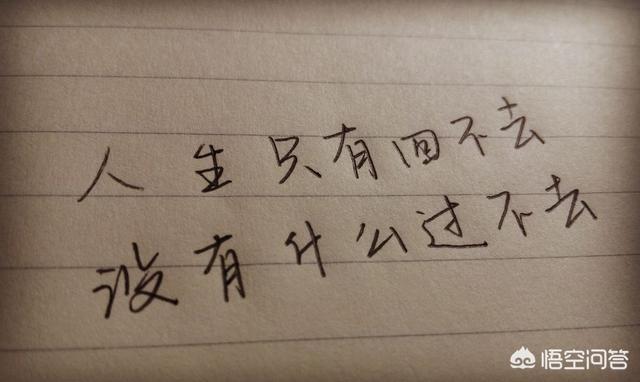 人生只有回不去
没有什么过不去
悟空问答